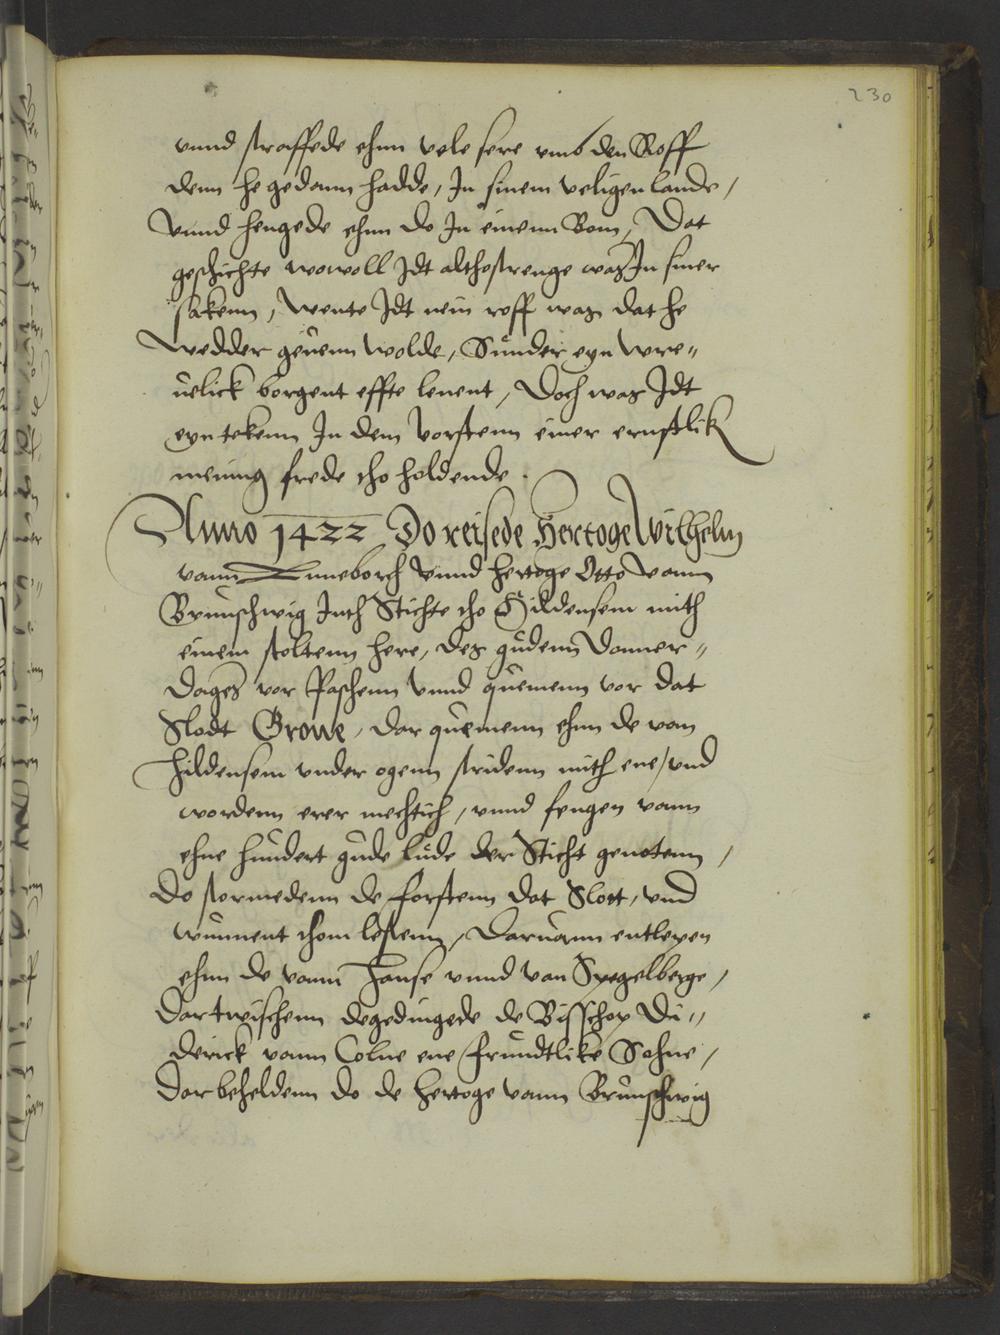 230
vnnd straffede ehm vele sere vmb den Roff
denn he gedann hadde, In sinem veligen lande,
Vnnd hengede ehm do In einenn Bom, Dat
geschichte wowoll Idt althostrenge was In siner
saken, Wente Idt nein roff was dat he
Wedder geuenn wolde, Sunder eyn wre„
uelick borgent effte lenent, Doch was Idt
eyn tekenn In dem Vorstenn einer ernstlik
meinung frede tho holdende.
Anno 1422 Do reisede Hertoge Wilhelm
vann Luneborch Vnnd hertoge Otto vann
Brunschwig Inth Stichte tho Hildensem mith
einem stoltenn here, des gudenn Donner„
dages vor Paschenn Vnnd quemenn vor dat
Slodt Grone, dar quemenn ehm de van
Hildensem vnder ogenn stridenn mith ene, vnd
wordenn erer mechtich, vnnd fengen vann
ehne hundert gude lude der Sticht genotenn,
Do stormedenn de forstenn dat Slott, vnd
wunnent thom lestenn, Daruann entlepen
ehm de vann Hanse vnnd van Spegelberge,
Dar twischenn degedingede de Bisschop Di„
derick vann Colne ene fruntlike Sohne,
Dar beheldenn do de hertoge vann Brunschwig